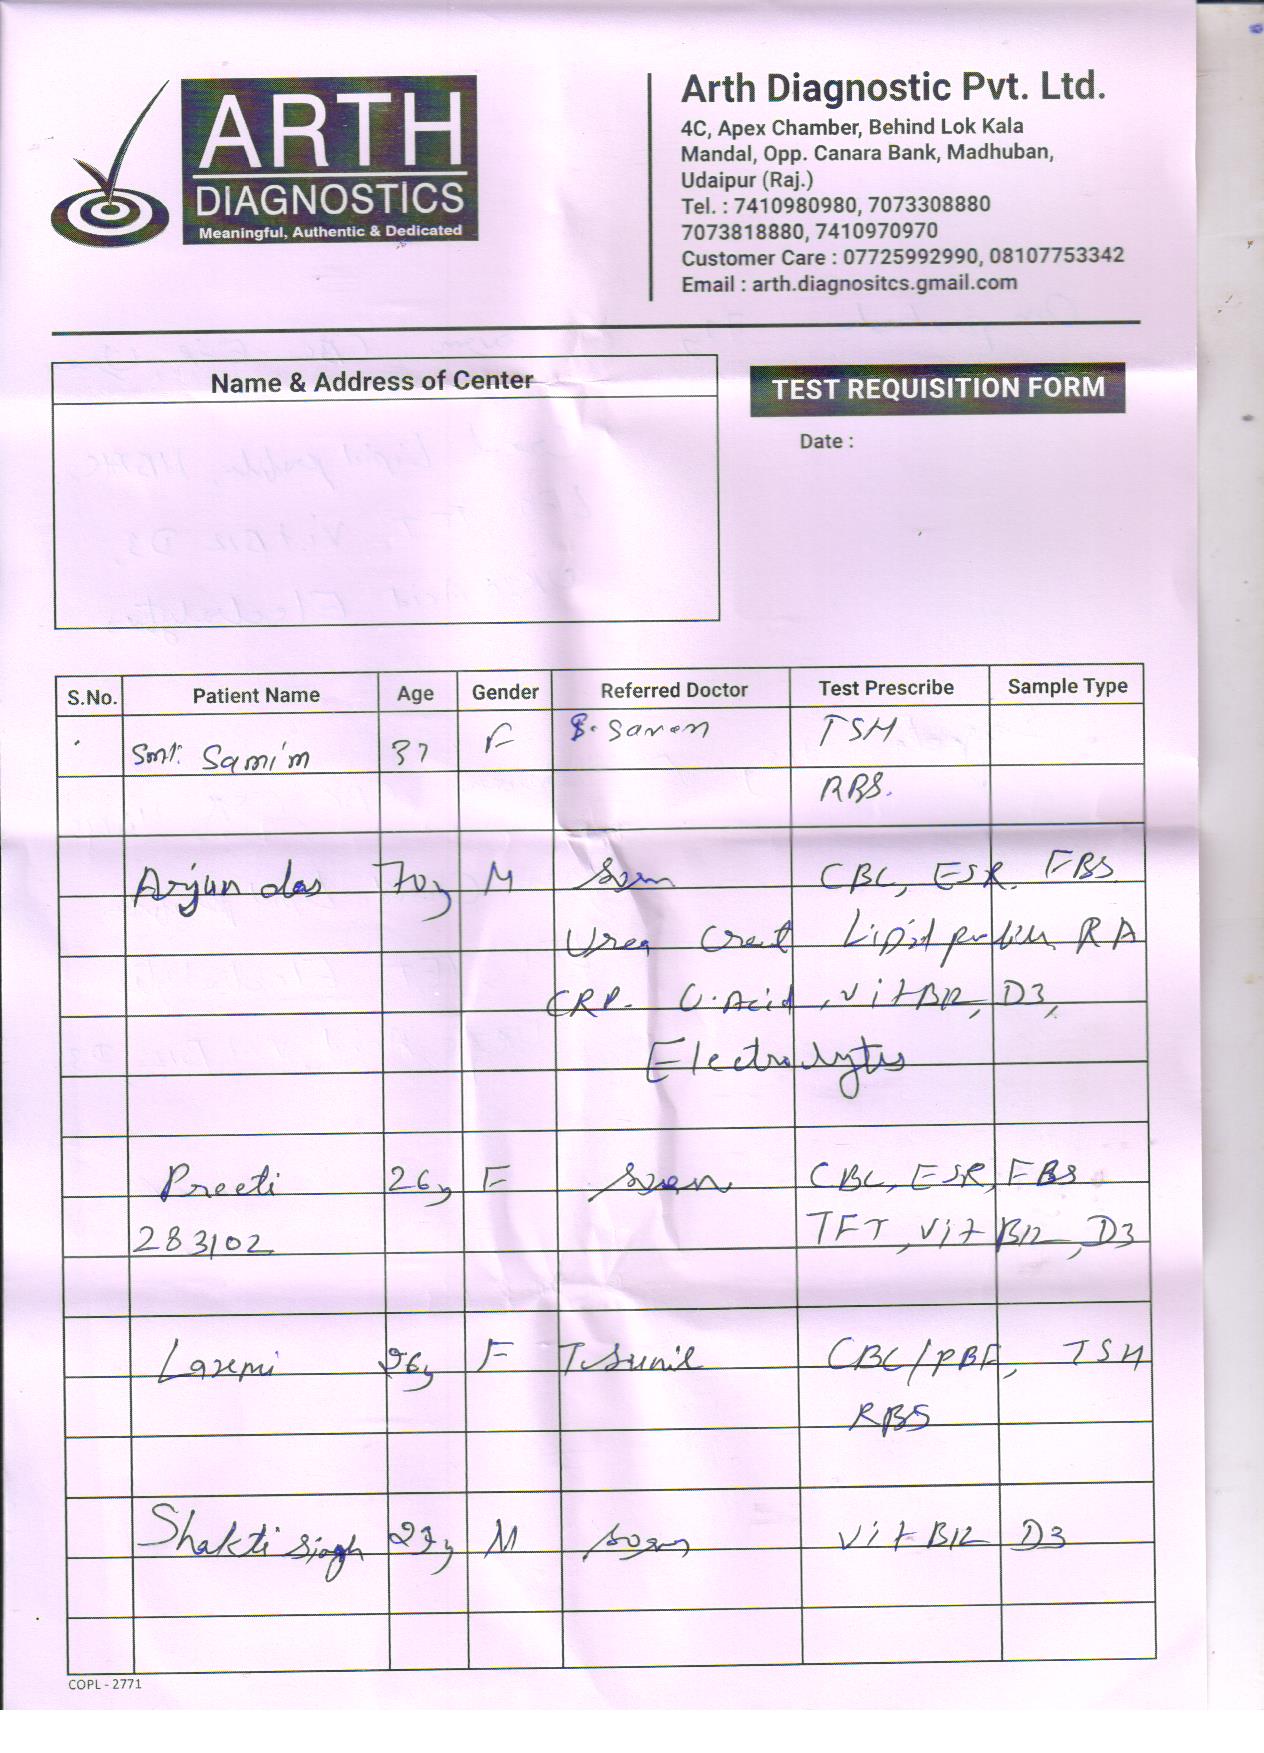 ARTH
DIAGNOSTICS
Meaningful, Authentic & Dedicated
Arth Diagnostic Pvt. Ltd.
4C, Apex Chamber, Behind Lok Kala
Mandal, Opp. Canara Bank, Madhuban,
Udaipur (Raj.)
Tel. : 7410980980, 7073308880
7073818880, 7410970970
Customer Care : 07725992990, 08107753342
Email : arth.diagnositcs.gmail.com
Name & Address of Center
TEST REQUISITION FORM
Date :
S.No. Patient Name Age Gender Referred Doctor Test Prescribe Sample Type
Smt. Samim 37 F TSH
RBS.
Arjun das 70y M CBC, ESR, FBS
Urea Creat Lipid RA
CRP. U.Acid, Vit B12, D3,
Electrolytes
Preeti 26y F CBC, ESR, FBS
283102 TFT, Vit B12, D3
Laxmi 26y F T. Sunil CBC/PBF, TSH
RBS
Shakti Singh M Vit B12 D3
COPL - 2771